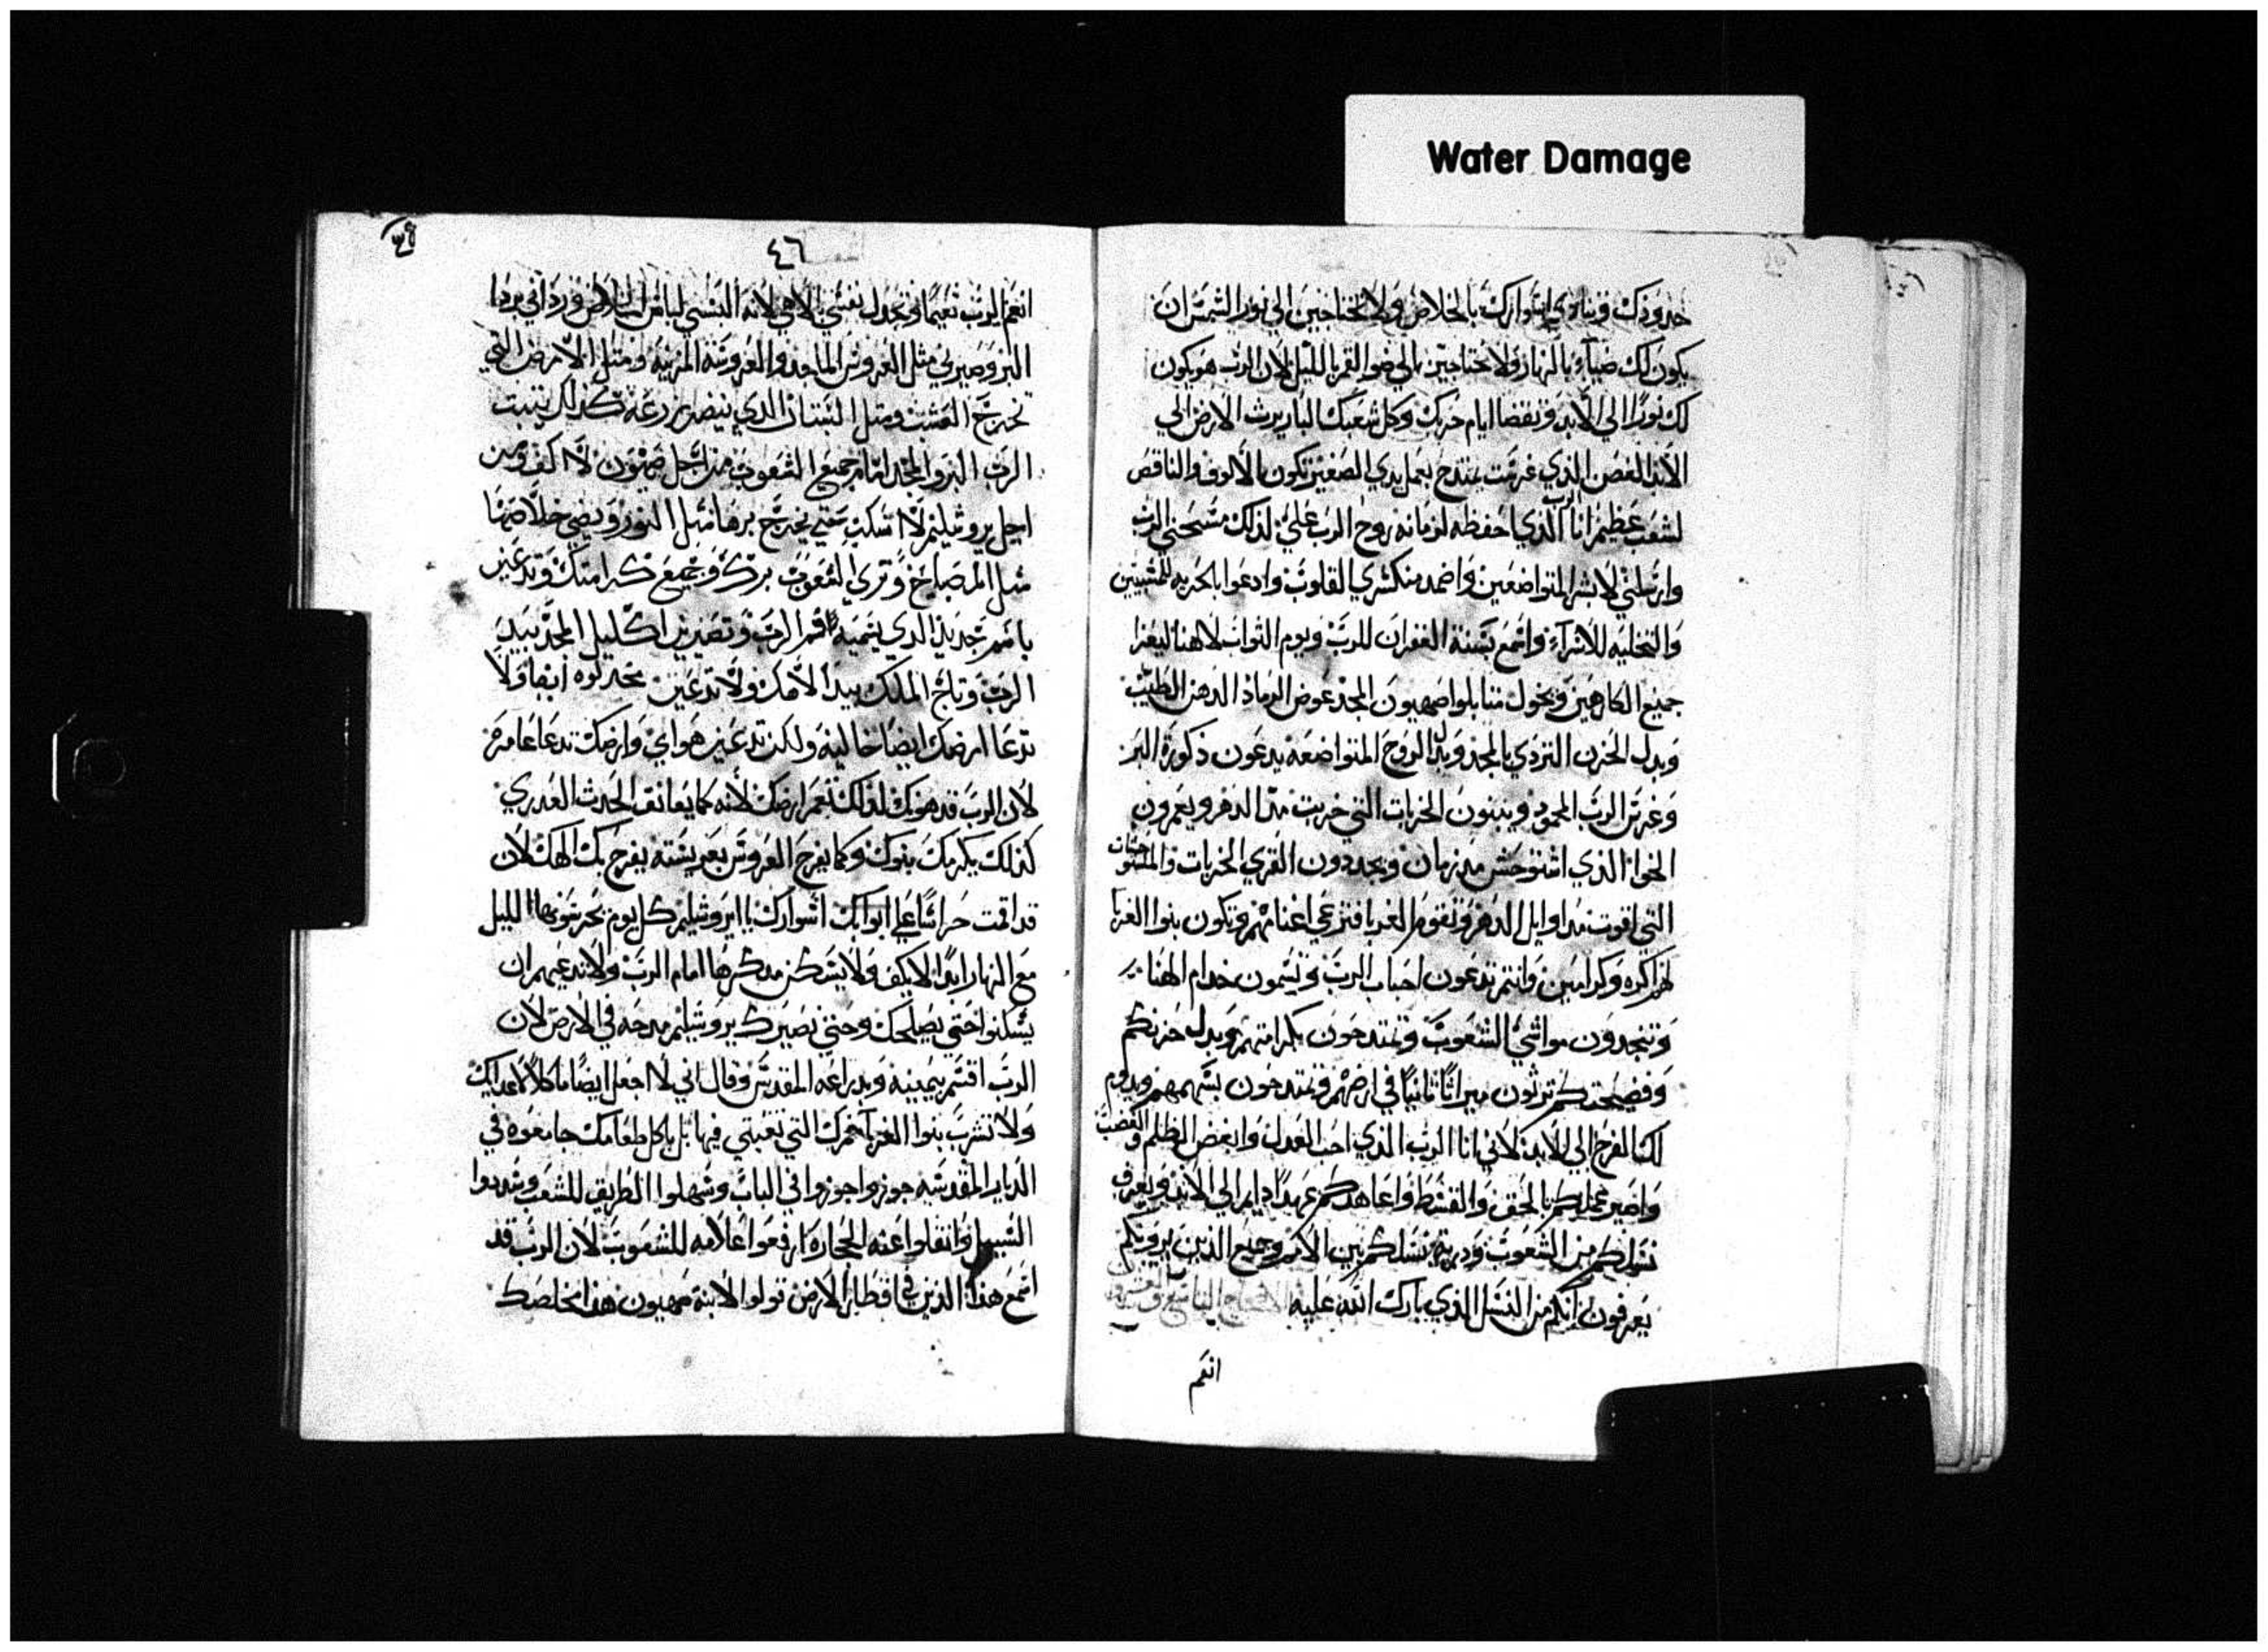 Water Damage
حدودك وتنادي اسوارك بالخلاص ولا تحتاجين الي نور الشمس ان
يكون لك ضياء بالنهار ولا تحتاجين الي ضو القمر بالليل لان الرب هو يكون
لك نورا الي الابد وتنقضا ايام حزنك وكل شعبك البار يرث الارض الي
الابد الغصن الذي غرست يمتدح بعمل يدي الصغير تكون بالالوف والناقص
لشعب عظيم انا الرب الذي احفظه لزمانه روح الرب علي لذلك مسحني الرب
وارسلني لابشر المتواضعين واضمد منكسري القلوب وادعوا بالحريه للمسبيين
والتخليه للاسرآء واسمع بسنة الغفران للرب ويوم الثواب لالاهنا ليعزا
جميع الكارهين ويحول متنا بلوا صهيون المجد عوض الرماد الدهن الطيب
وبدل الحزن التردي بالمجد وبدل الروح المتواضعه يدعون ذكورة البر
وغرس الرب المحمود ويبنون الخربات التي خربت مد الدهر ويعمرون
الخوا الذي استوحش مد زمان ويجددون القري الخربات والمستوحشات
التي اقوت مد اوايل الدهر وتقوم الغربا فترعي اغنامهم وتكون بنوا الغربا
لهم اكره وكرامين وانتم تدعون احباب الرب وتسمون خدام الهنا
وتنجدون مواشي الشعوب وتمتدحون بكرامتهم وبدل حزنكم
وفضيحتكم ترثون ميراثا ثانيا في ارضهم وتمتدحون بسهمهم ويدوم
لكم الفرح الي الابد لاني انا الرب الذي احب العدل وابغض الظلم والغصب
واصير عملكم بالحق والقسط واعاهدكم عهدا دايم الي الابد ويعرف
نسلكم من الشعوب ودرية نسلكم بين الامم وجميع الذين يرونكم
يعرفون انكم من النسل الذي بارك الله عليه الاصحاح التاسع
انعم
٤٦
انعم الرب نعيما وتجدل نفسي الاهي لانه البسني لباس الخلاص ورداني بردا
البر وصيرني مثل العروس الماجد والعروسه المزينه ومثل الارض التي
تخرج العشب ومثل البستان الدي ينضر زرعه كدلك ينبت
الرب البر والمجد امام جميع الشعوب من اجل صهيون لا اكف ومن
اجل يروشيليم لا اسكت حتي يخرج برها مثل النور ويضي خلاصها
مثل المصباح وتري الشعوب برك وجميع كرامتك وتدعين
باسم جديد الدي يسميه فم الرب وتصيرين اكليل المجد بيد
الرب وتاج الملك بيد الاهك ولا تدعين مخدلوه ايضا ولا
تدعا ارضك ايضا خاليه ولكن تدعين هواي وارضك تدعا عامره
لان الرب قد هويك لدلك تعمر ارضك لانه كما يعانق الحدث العدري
كذلك يكرمك بنوك وكما يفرح العروس بعريسته يفرح بك الهك لان
قد اقمت حراسا علي ابوابك اسوارك يا ايروشيليم كل يوم يحرسونها الليل
مع النهار ابدا لا يكف ولا يسكن مدكرها امام الرب ولا تدعيهم ان
يسكنوا حتي يصلحك وحتي يصيرك يروشيليم مدحه في الارض لان
الرب اقسم بيمينه وبدراعه المقدس وقال اني لا اجعل ايضا ماكلا لاعدايك
ولا تشرب بنوا الغربآ خمرك التي تعبتي فيها بل ياكل طعامك جامعوه في
الديار المقدسه جوزوا جوزوا في الباب وسهلوا الطريق للشعب وشددوا
السبيل وانقلوا عنه الحجاره ارفعوا علامه للشعوب لان الرب قد
اسمع هذا الذين في اقطار الارض قولوا لابنة صهيون هذا مخلصك